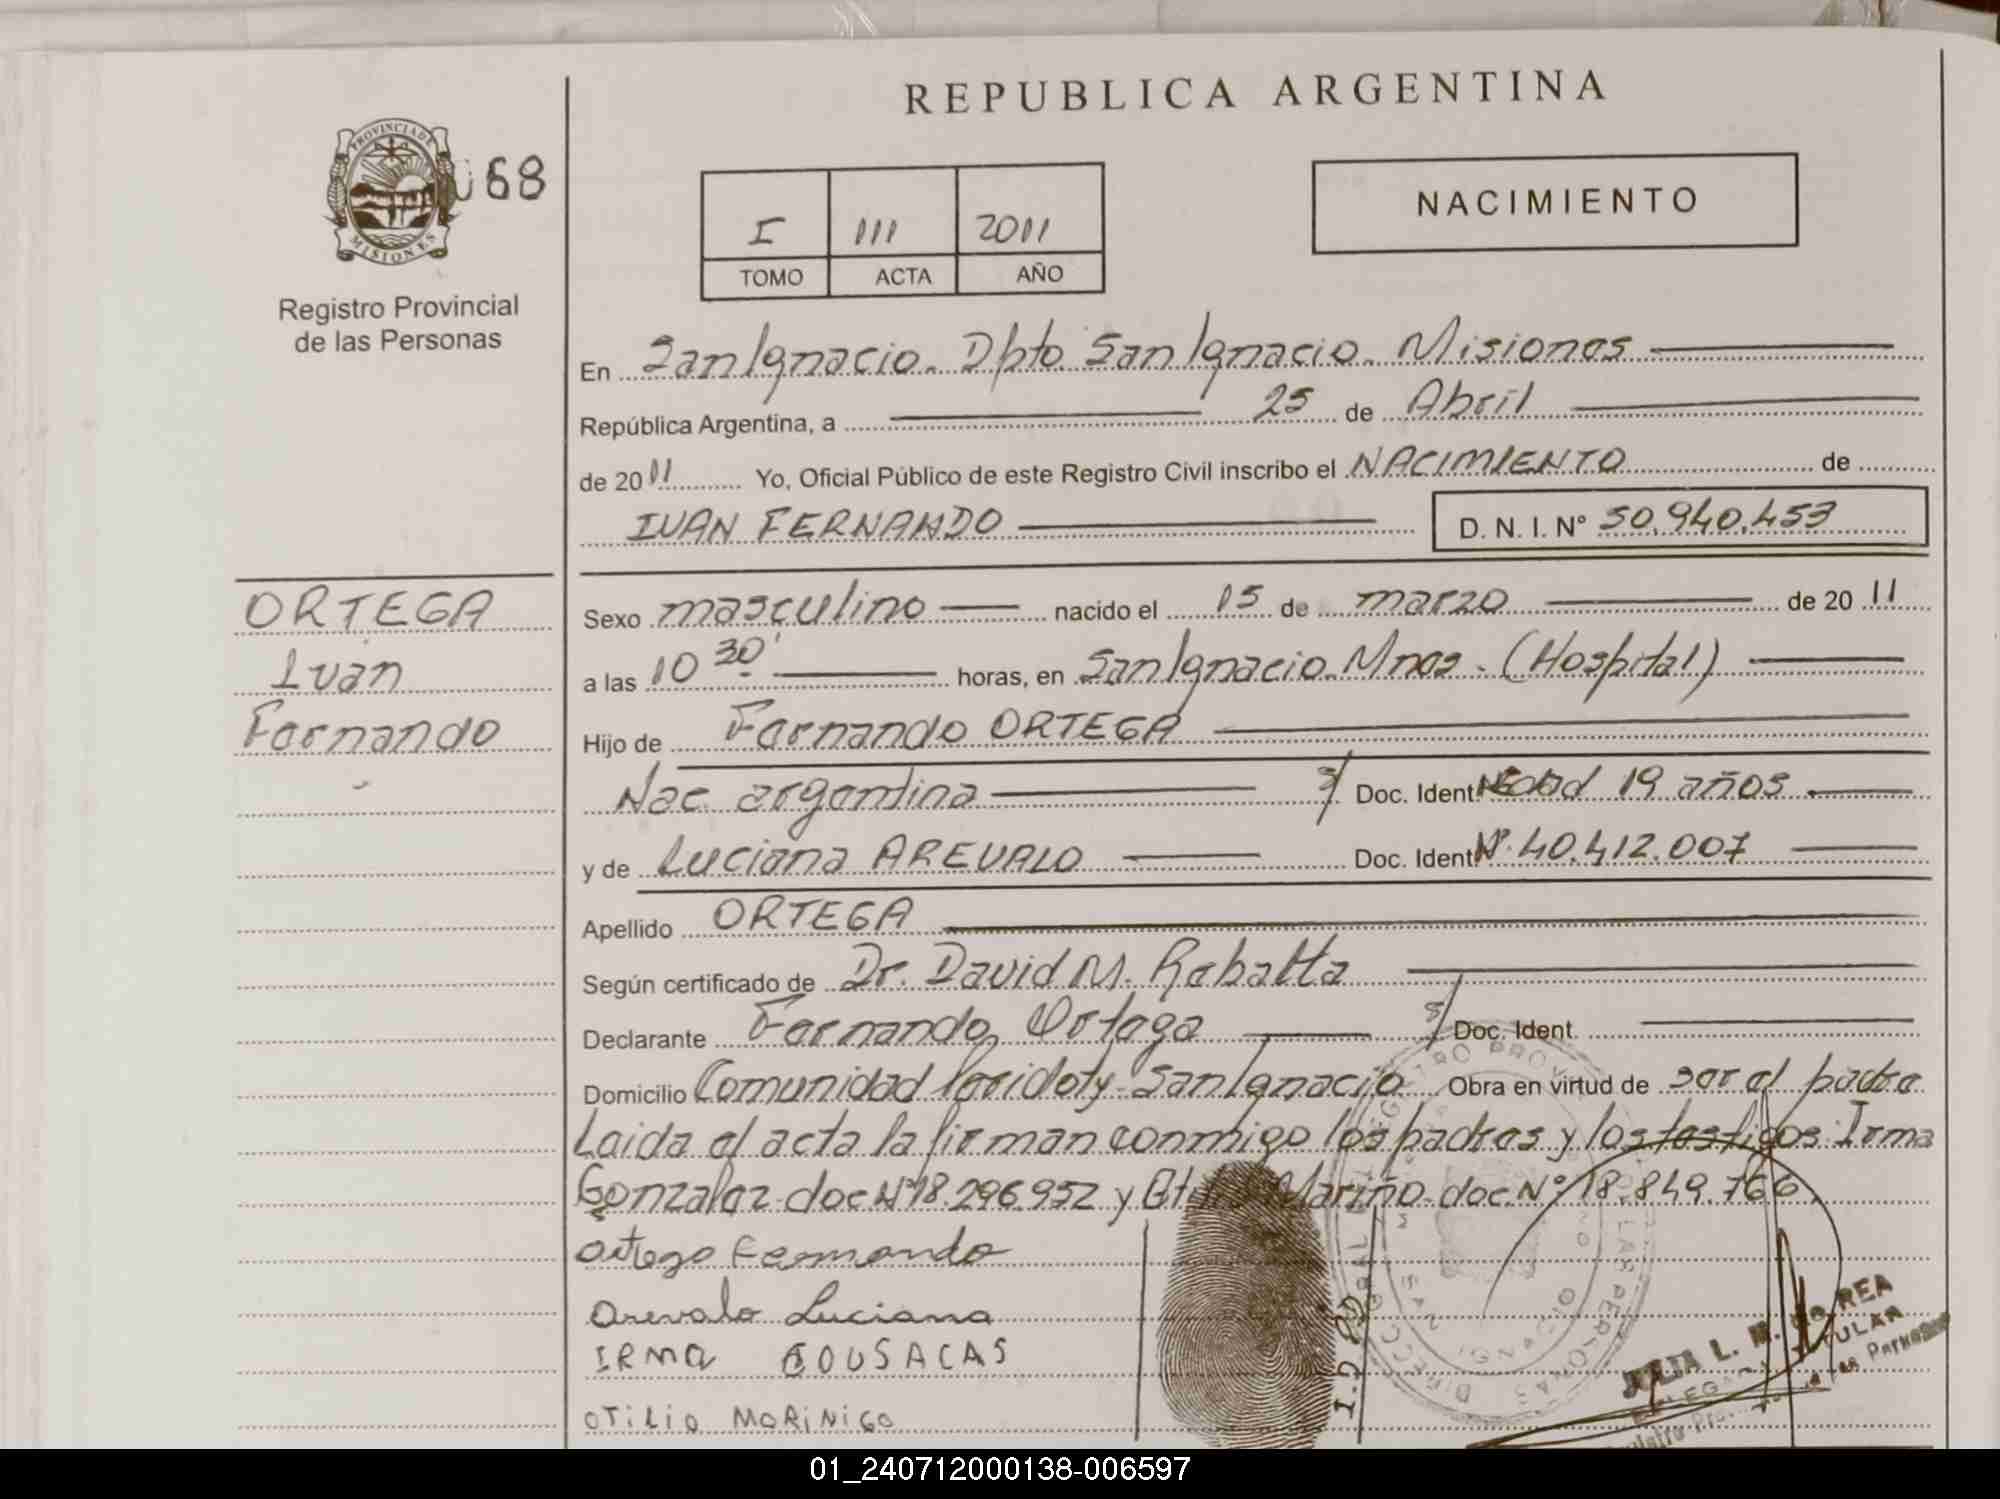 REPUBLICA ARGENTINA
PROVINCIA DE
MISIONES
068
Registro Provincial
de las Personas
I 111 2011
TOMO ACTA AÑO
NACIMIENTO
En San Ignacio. Dpto. San Ignacio. Misiones
República Argentina, a 25 de Abril
de 2011 Yo, Oficial Público de este Registro Civil inscribo el NACIMIENTO de
IVAN FERNANDO D. N. I. N° 50.940.453
ORTEGA
Ivan
Fernando
Sexo masculino nacido el 15 de marzo de 2011
a las 10 30' horas, en San Ignacio. Mnes. (Hospital)
Hijo de Fernando ORTEGA
Nac. argentina Doc. Ident. edad 19 años
y de Luciana AREVALO Doc. Ident. N° 40.412.007
Apellido ORTEGA
Según certificado de Dr. David M. Rebatta
Declarante Fernando Ortega Doc. Ident.
Domicilio Comunidad San Ignacio Obra en virtud de ser el padre
Leida el acta la firman conmigo los padres y los testigos: Irma
Gonzalez doc N° 18.296.952 y Mariño doc. N° 18.849.766
Ortego Fernando
Arevalo Luciana
IRMA
OTILIO MORINIGO
I.D.D
JULIA L. M. CORREA
TITULAR
01_240712000138-006597